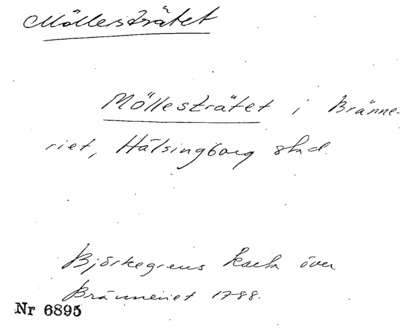 Möllesträtet
Möllesträtet i Bränne-
riet, Hälsingborg stad.
Björkegrens karta över
Bränneriet 1788.
Nr 6895